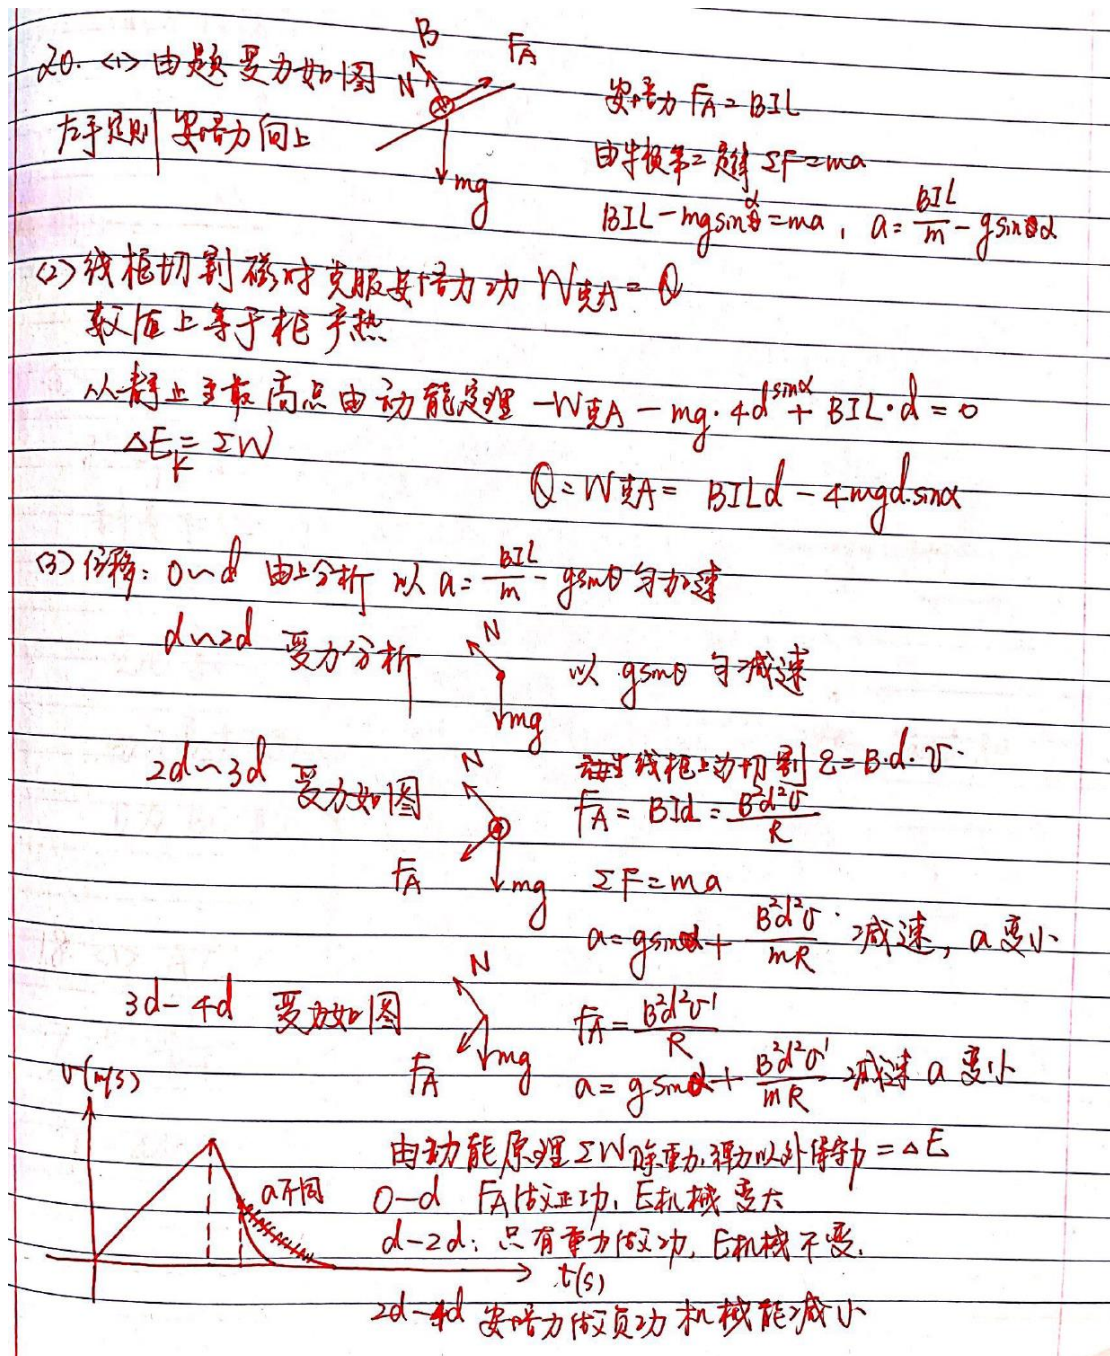 20. <1> 由题受力如图
B
FA
N
mg
左手定则 安培力向上
安培力 FA = BIL
由牛顿第二定律 ΣF=ma
BIL - mgsinα = ma , a = BIL/m - gsinα
<2> 线框切割磁时克服安培力功 W克A = Q
数值上等于框产热
从静止至最高点由动能定理 -W克A - mg·4dsinα + BIL·d = 0
ΔEk = ΣW
Q = W克A = BILd - 4mgd·sinα
<3> 位移: 0~d 由上分析 以 a = BIL/m - gsinθ 匀加速
d~2d 受力分析
N
mg
以 gsinθ 匀减速
2d~3d 受力如图
N
FA
mg
线框上边切割 ε=B·d·v
FA = BId = B²d²v/R
ΣF=ma
a = gsinα + B²d²v/mR 减速, a变小
3d-4d 受力如图
N
FA
mg
FA = B²d²v'/R
a = gsinα + B²d²v'/mR 减速 a变小
v(m/s)
a不同
t(s)
由功能原理 ΣW除重力,弹力以外得功 = ΔE
0-d FA做正功, E机械变大
d-2d: 只有重力做功, E机械不变.
2d-4d 安培力做负功 机械能减小